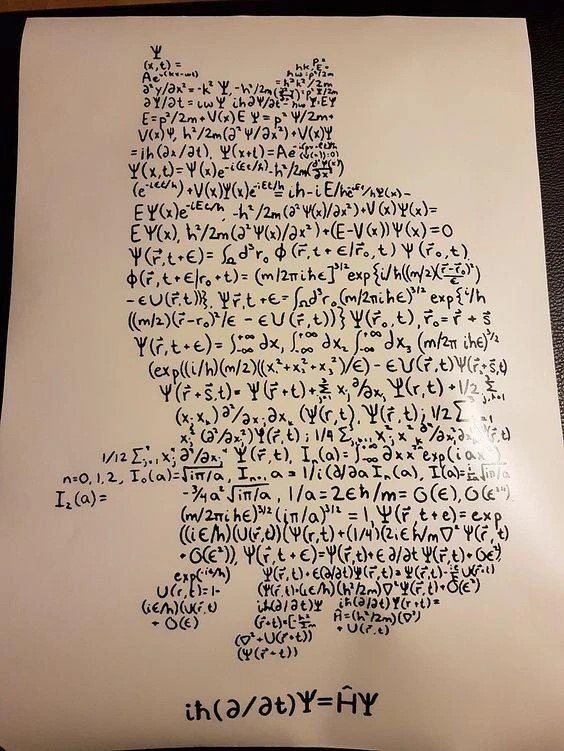 Ψ
(x,t) = hk, p²
Ae^i(kx-ωt) E=
∂²y/∂x² = -k² Ψ, -ħ²/2m
∂Ψ/∂t = iω Ψ iħ ∂Ψ/∂t = ħω Ψ=EΨ
E=p²/2m+V(x) E Ψ = p² Ψ/2m+
V(x)Ψ, ħ²/2m(∂²Ψ/∂x²)+V(x)Ψ
=iħ(∂x/∂t), Ψ(x+t)=Ae
Ψ(x,t)=Ψ(x)e^-i(Et/ħ) -ħ²/2m(∂²Ψ(x)/∂x²)
(e^-iEt/ħ)+V(x)Ψ(x)e^-iEt/ħ = iħ-iE/ħe^-iEt/ħΨ(x)-
EΨ(x)e^-iEt/ħ, -ħ²/2m(∂²Ψ(x)/∂x²)+V(x)Ψ(x)=
EΨ(x), ħ²/2m(∂²Ψ(x)/∂x²)+(E-V(x))Ψ(x)=0
Ψ(r⃗,t+ϵ)=∫Ω d³r₀ ϕ(r⃗,t+ϵ/r⃗₀,t) Ψ(r⃗₀,t),
ϕ(r⃗,t+ϵ/r₀+t)=(m/2πiħϵ]^3/2 exp{i/ħ((m/2)((r⃗-r⃗₀)²/ϵ)
-ϵU(r⃗,t))}, Ψr⃗,t+ϵ=∫Ωd³r₀(m/2πiħϵ)^3/2 exp{i/ħ
((m/2)(r⃗-r₀)²/ϵ -ϵU(r⃗,t))}Ψ(r⃗₀,t), r⃗₀=r⃗+s⃗
Ψ(r⃗,t+ϵ)=∫-∞^+∞ dx₁ ∫-∞^+∞ dx₂ ∫-∞^+∞ dx₃ (m/2πiħϵ)^3/2
(exp((i/ħ)(m/2)((x₁²+x₂²+x₃²)/ϵ)-ϵU(r⃗,t)Ψ(r⃗+s⃗,t)
Ψ(r⃗+s⃗,t)=Ψ(r⃗+t)+Σ xⱼ ∂/∂xⱼ Ψ(r,t)+1/2 Σ
(xⱼ xₖ) ∂²/∂xⱼ∂xₖ (Ψ(r,t), Ψ(r⃗,t); 1/2 Σ
xⱼ² (∂²/∂x²)Ψ(r⃗,t); 1/4 Σ xⱼ² xₖ² ∂²/∂xⱼ∂xₖ Ψ(r⃗,t)
1/12 Σ xⱼ⁴ ∂²/∂xⱼ Ψ(r⃗,t), Iₙ(a)=∫-∞^+∞ dx xⁿ exp(iax²)
n=0,1,2, I₀(a)=√iπ/a, Iₙ₊₁ a = 1/i(∂/∂a Iₙ(a), I(a)= √iπ/a
I₂(a)= -3/4a² √iπ/a, 1/a=2ϵħ/m=O(ϵ),O(ϵ²)
(m/2πiħϵ)^3/2 (iπ/a)^3/2 = 1, Ψ(r⃗ t+e)=exp
((iϵ/ħ)(U(r⃗,t))(Ψ(r,t)+(1/4)(2iϵħ/m∇² Ψ(r⃗,t)
+O(ϵ²)), Ψ(r⃗,t+ϵ)=Ψ(r⃗,t)+ϵ∂/∂t Ψ(r⃗,t)+O(ϵ²)
exp(-iϵ/ħ) Ψ(r⃗,t)+ϵ(∂/∂t)Ψ(r⃗,t)=Ψ(r⃗,t)-iϵ/ħ U(r⃗,t)
U(r,t)=1- (Ψ(r⃗,t)+(iϵ/ħ)(ħ²/2m)∇²Ψ(r⃗,t)+O(ϵ²)
(iϵ/ħ)(U(r⃗,t) iħ(∂/∂t)Ψ iħ(∂/∂t)Ψ(r,t)=
+O(ϵ) (r⃗+t)=[-ħ²/2m Ĥ=(ħ²/2m)(∇²)
(∇²+U(r⃗+t)) +U(r⃗,t)
(Ψ(r⃗+t))
iħ(∂/∂t)Ψ=ĤΨ